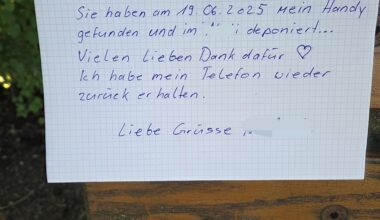 Sie haben am 19.06.2025 mein Handy
gefunden und im deponiert...
Vielen lieben Dank dafür ♡
Ich habe mein Telefon wieder
zurück erhalten.
Liebe Grüsse